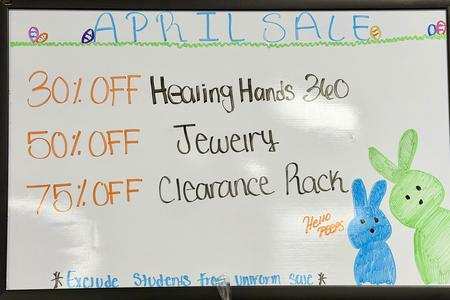 APRIL SALE
30% OFF Healing Hands 360
50% OFF Jewelry
75% OFF Clearance Rack
Hello
PEEPS
*Exclude Students from uniform sale*